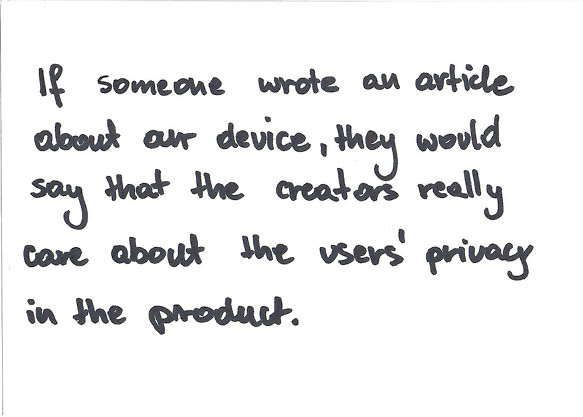 If someone wrote an article
about our device, they would
say that the creators really
care about the users' privacy
in the product.